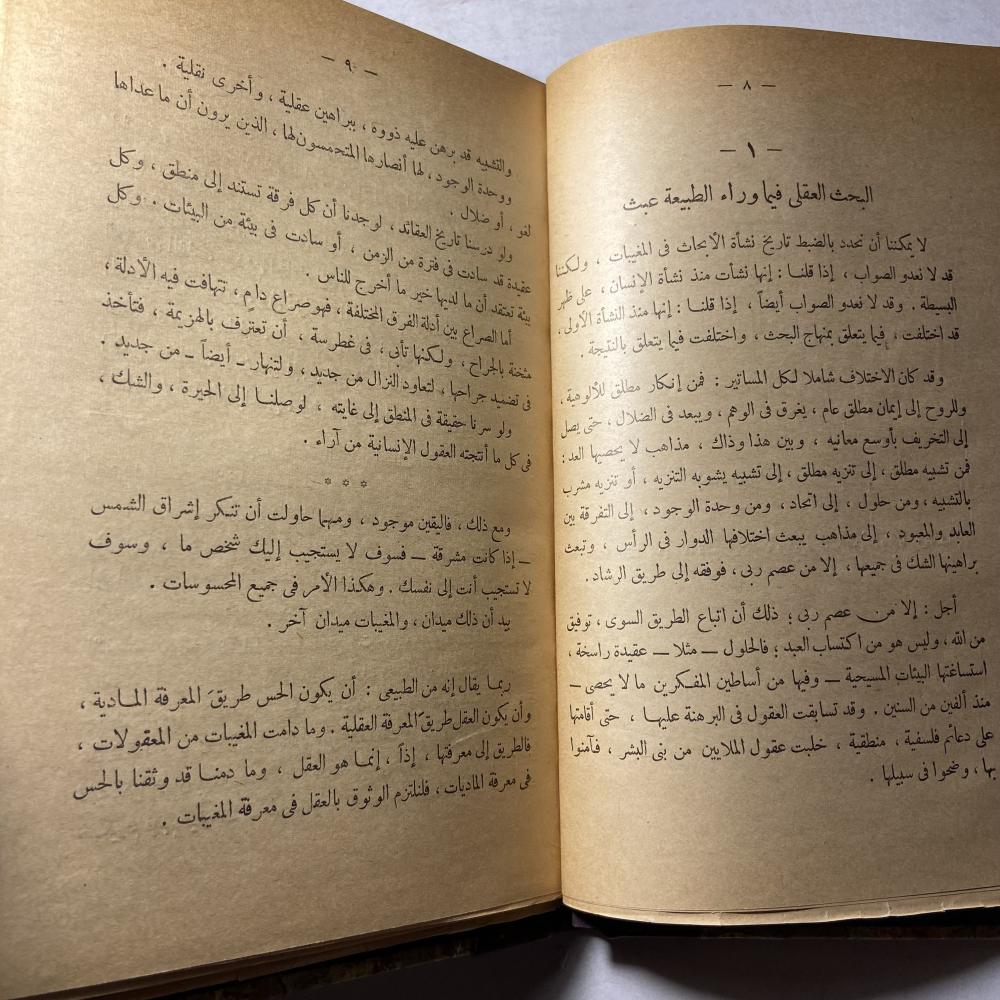 — ٨ —
— ١ —
البحث العقلى فيما وراء الطبيعة عبث
لا يمكننا أن نحدد بالضبط تاريخ نشأة الأبحاث فى المغيبات ، ولكننا
قد لا نعدو الصواب ، إذا قلنا : إنها نشأت منذ نشأة الإنسان ، على ظهر
البسطة . وقد لا نعدو الصواب أيضاً ، إذا قلنا : إنها منذ النشأة الأولى ،
قد اختلفت ، فيما يتعلق بمنهاج البحث ، واختلفت فيما يتعلق بالنتيجة .
وقد كان الاختلاف شاملا لكل المساتير : فمن إنكار مطلق للألوهية ،
وللروح إلى إيمان مطلق عام ، يغرق فى الوهم ، ويبعد فى الضلال ، حتى يصل
إلى التخريف بأوسع معانيه ، وبين هذا وذاك ، مذاهب لا يحصيها العد :
فمن تشبيه مطلق ، إلى تنزيه مطلق ، إلى تشبيه يشوبه التنزيه ، أو تنزيه مشرب
بالتشبيه ، ومن حلول ، إلى اتحاد ، ومن وحدة الوجود ، إلى التفرقة بين
العابد والمعبود ، إلى مذاهب يبعث اختلافها الدوار فى الرأس ، وتبعث
براهينها الشك فى جميعها ، إلا من عصم ربى ، فوفقه إلى طريق الرشاد .
أجل : إلا من عصم ربى ؛ ذلك أن اتباع الطريق السوى ، توفيق
من الله ، وليس هو من اكتساب العبد ؛ فالحلول — مثلا — عقيدة راسخة ،
استساغتها البيئات المسيحية — وفيها من أساطين المفكرين ما لا يحصى —
منذ ألفين من السنين . وقد تسابقت العقول فى البرهنة عليها ، حتى أقامتها
على دعائم فلسفية ، منطقية ، خلبت عقول الملايين من بنى البشر ، فآمنوا
بها ، وضحوا فى سبيلها .
— ٩ —
والتشبيه قد برهن عليه ذووه ، ببراهين عقلية ، وأخرى نقلية .
ووحدة الوجود ، لها أنصارها المتحمسون لها ، الذين يرون أن ما عداها
لغو ، أو ضلال .
ولو درسنا تاريخ العقائد ، لوجدنا أن كل فرقة تستند إلى منطق ، وكل
عقيدة قد سادت فى فترة من الزمن ، أو سادت فى بيئة من البيئات . وكل
بيئة تعتقد أن ما لديها خير ما أخرج للناس .
أما الصراع بين أدلة الفرق المختلفة ، فهو صراع دامٍ ، تتهافت فيه الأدلة ،
مثخنة بالجراح ، ولكنها تأبى ، فى غطرسة ، أن تعترف بالهزيمة ، فتأخذ
فى تضميد جراحها ، لتعاود النزال من جديد ، ولتنهار — أيضاً — من جديد .
ولو سرنا حقيقة فى المنطق إلى غايته ، لوصلنا إلى الحيرة ، والشك ،
فى كل ما أنتجته العقول الإنسانية من آراء .
* * *
ومع ذلك ، فاليقين موجود ، ومهما حاولت أن تنكر إشراق الشمس
— إذا كانت مشرقة — فسوف لا يستجيب إليك شخص ما ، وسوف
لا تستجيب أنت إلى نفسك . وهكذا الأمر فى جميع المحسوسات .
بيد أن ذلك ميدان ، والمغيبات ميدان آخر .
ربما يقال إنه من الطبيعى : أن يكون الحس طريقَ المعرفة المادية ،
وأن يكون العقل طريقَ المعرفة العقلية . وما دامت المغيبات من المعقولات ،
فالطريق إلى معرفتها ، إذاً ، إنما هو العقل ، وما دمنا قد وثقنا بالحس
فى معرفة الماديات ، فلنلتزم الوثوق بالعقل فى معرفة المغيبات .